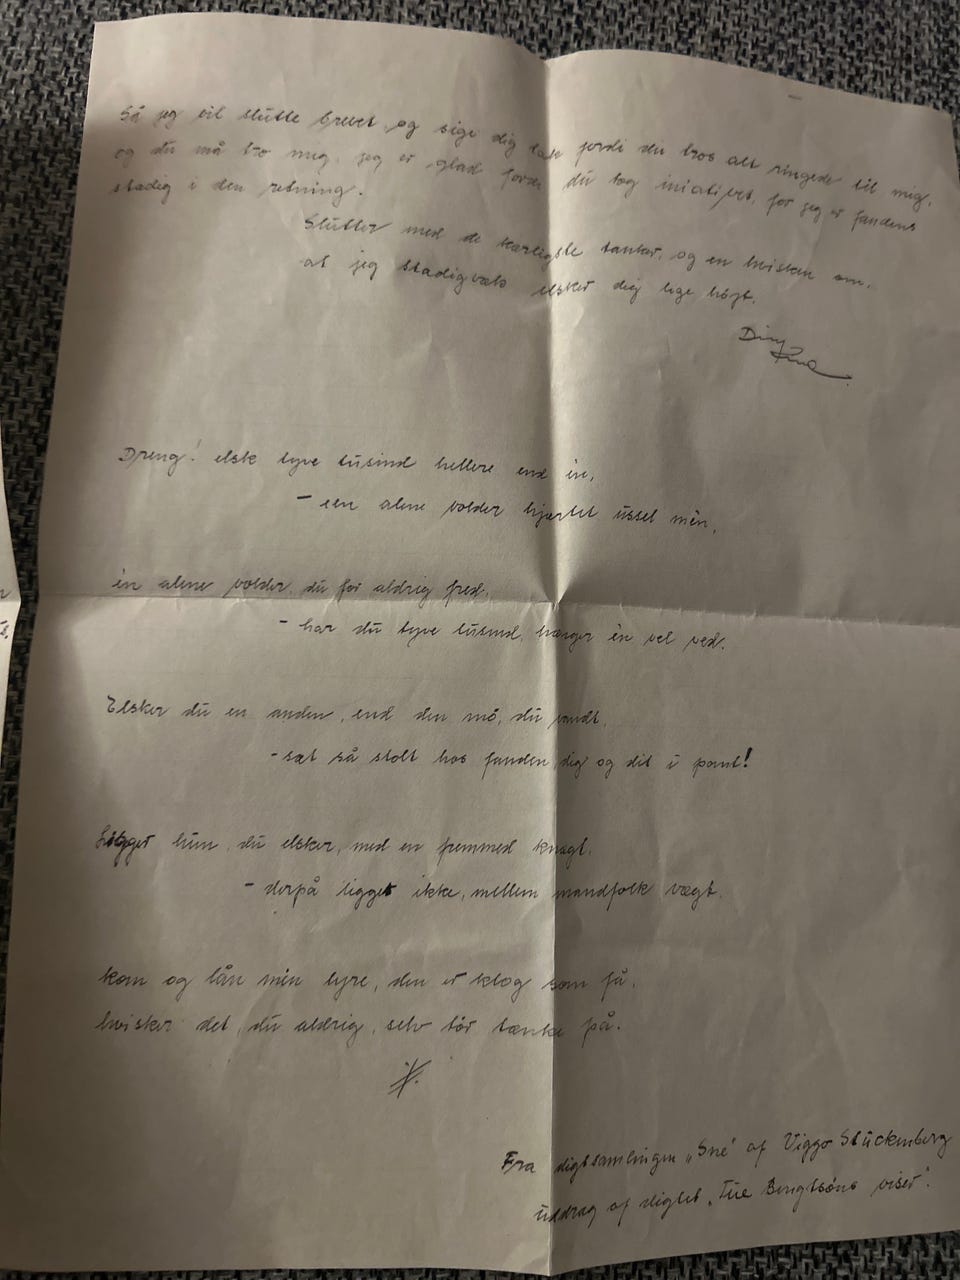 Så jeg vil slutte brevet, og sige dig tak fordi du tros alt ringede til mig.
og du må tro mig, jeg er glad fordi du tog iniatitivet, for jeg er fandens
stadig i den retning.
Slutter med de kærligste tanker, og en hvisken om,
at jeg stadigvæk elsker dig lige højt.
Din
Dreng! elsk tyve tusind hellere end én,
- een alene volder hjærtet ussel mén,
én alene volder, du før aldrig fred,
- har du tyve tusind, hænger én vel ved.
Elsker du en anden, end den mö, du vandt,
- sæt så stolt hos fanden dig og dit i pant!
Ligger hun, du elsker, med en fremmed knægt,
- derpå ligger ikke, mellem mandfolk vægt.
kom og lån min lyre, den er klog som få,
hvisker det, du aldrig, selv tör tænke på.
Fra digtsamlingen „Sne" af Viggo Stückenberg
uddrag af digtet „Tue Bengtsöns viser".